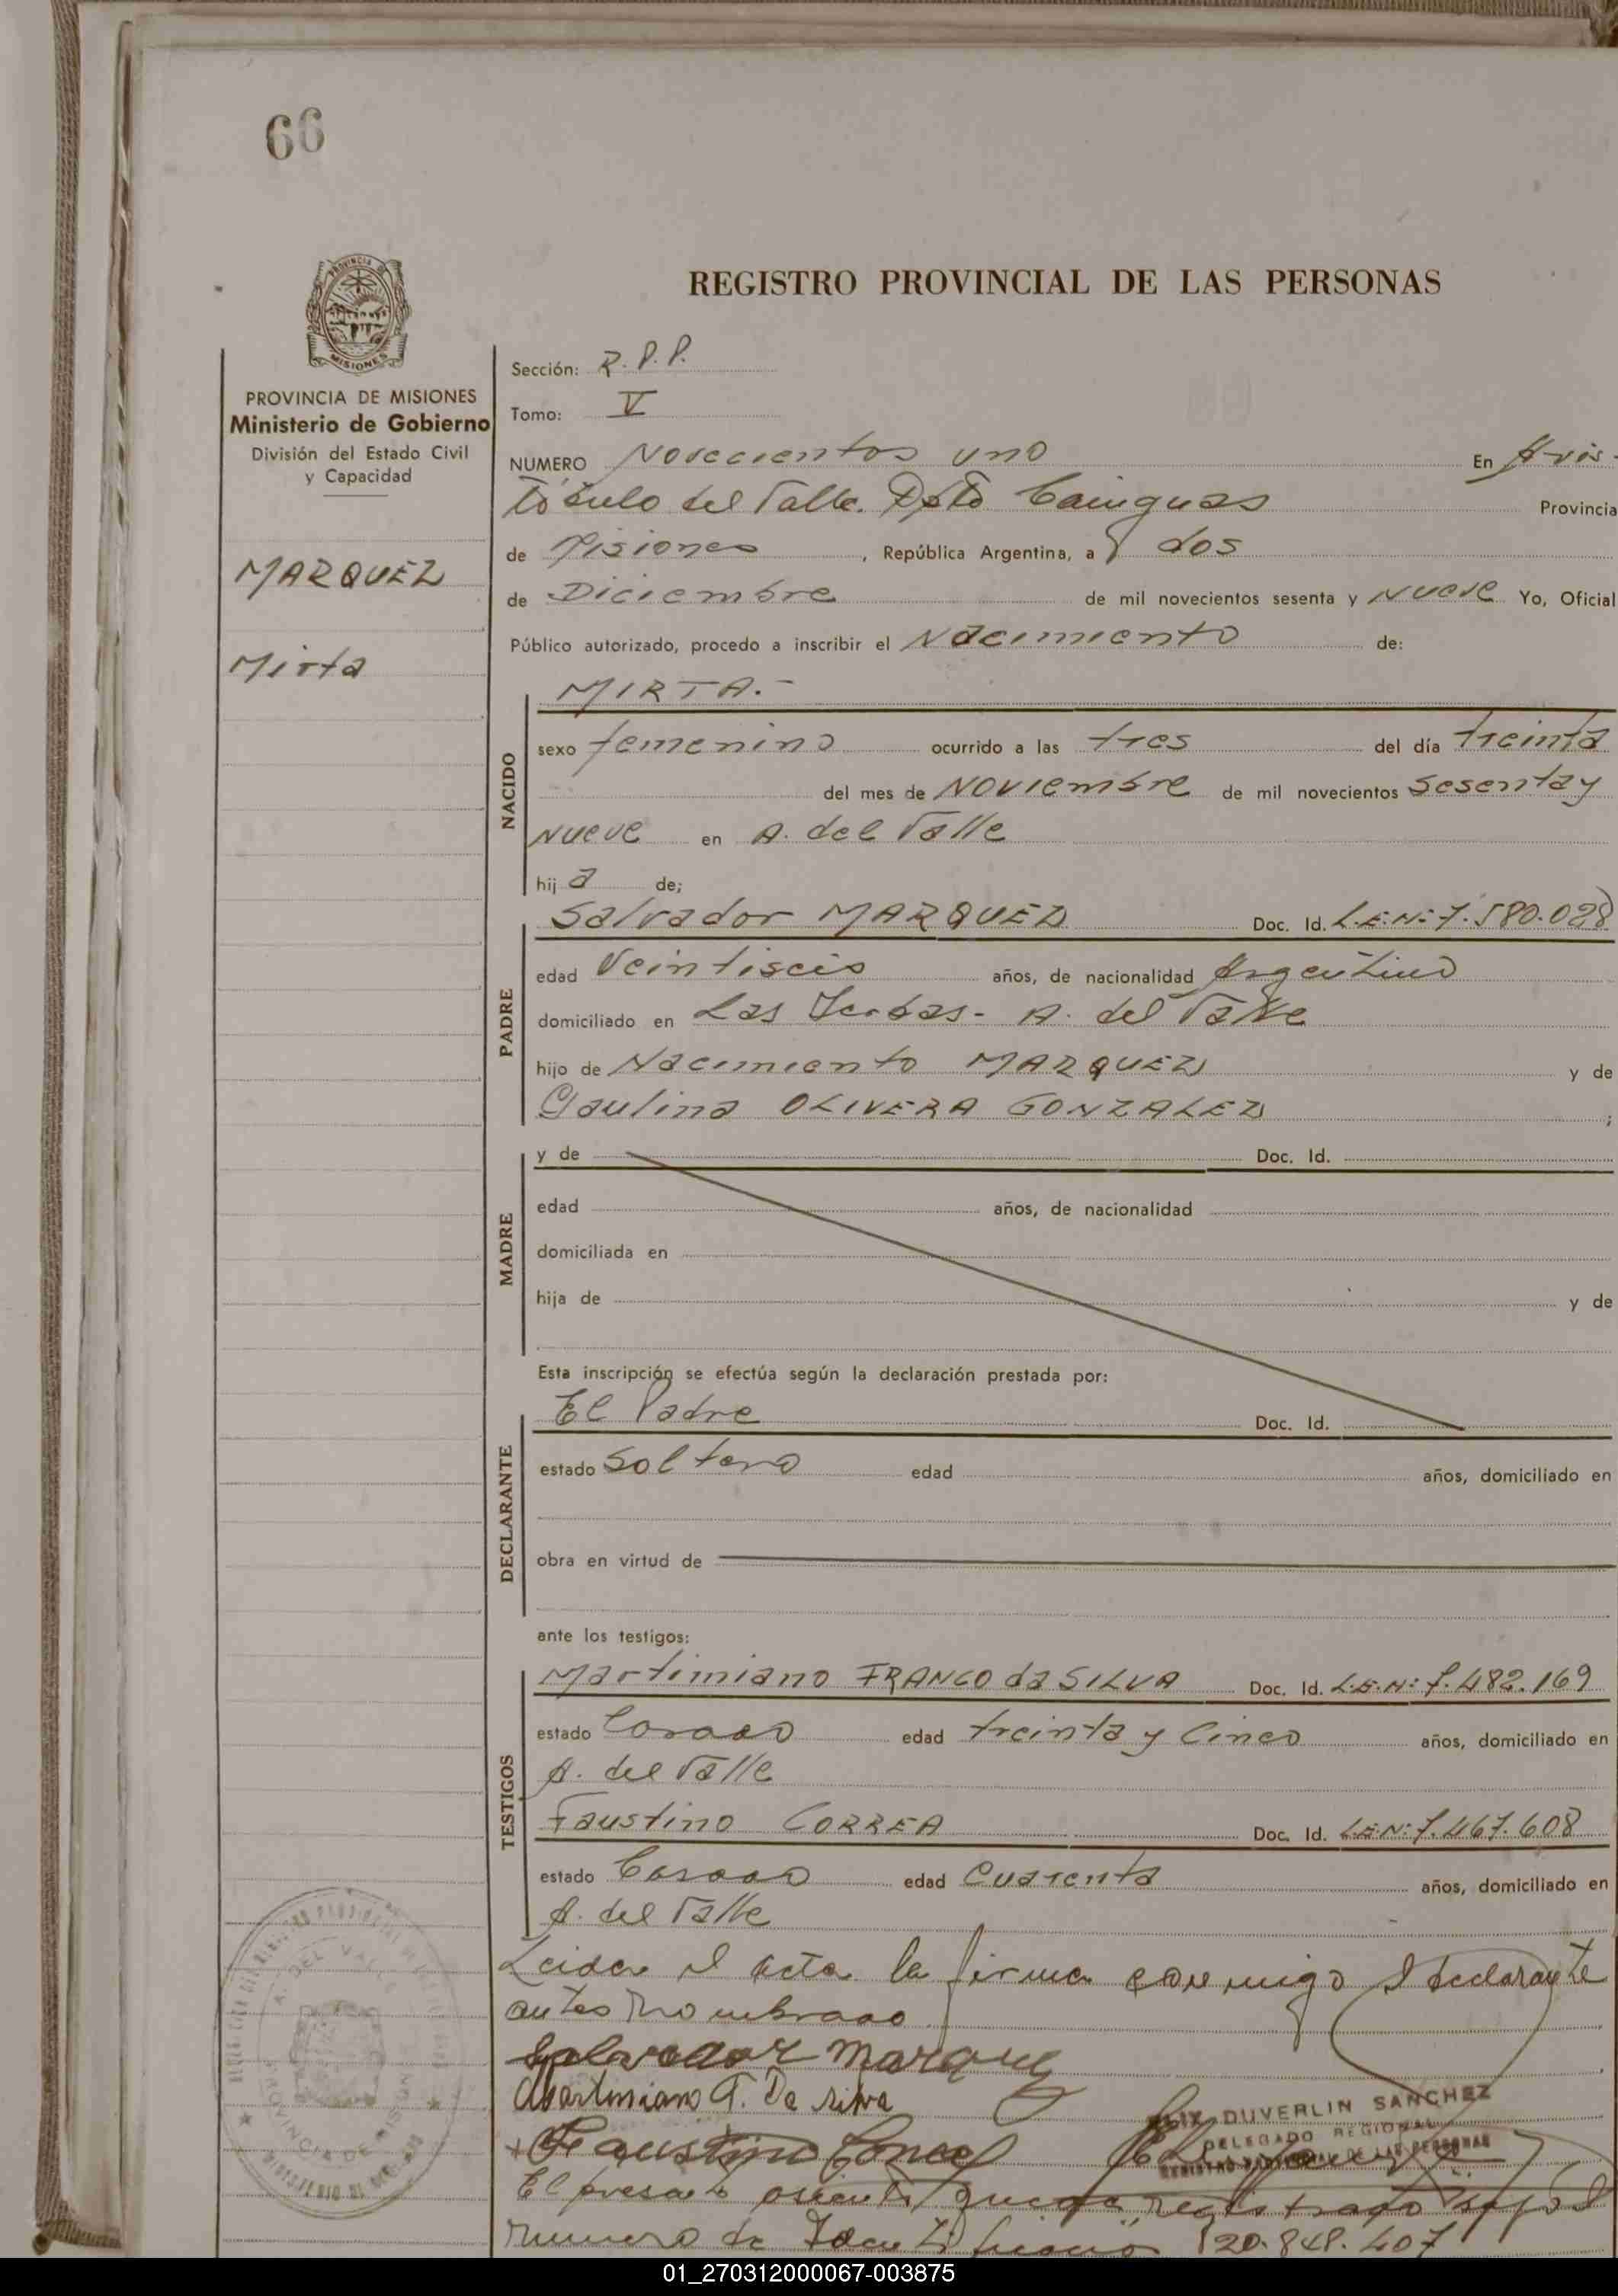 66
REGISTRO PROVINCIAL DE LAS PERSONAS
MISIONES
PROVINCIA DE MISIONES
Ministerio de Gobierno
División del Estado Civil
y Capacidad
MARQUEZ
Mirta
Sección: R.P.P.
Tomo: V
NUMERO Novecientos uno En Aris-
tóbulo del Valle. Dpto Cainguas Provincia
de Misiones, República Argentina, a dos
de Diciembre de mil novecientos sesenta y Nueve Yo, Oficial
Público autorizado, procedo a inscribir el Nacimiento de:
MIRTA.-
NACIDO
sexo femenino ocurrido a las tres del día treinta
del mes de Noviembre de mil novecientos sesenta y
Nueve en A. del Valle
hij a de;
PADRE
Salvador MARQUEZ Doc. Id. L.E.Nº 7.580.028
edad Veintiseis años, de nacionalidad Argentino
domiciliado en Las Yerbas- A. del Valle
hijo de Nacimiento MARQUEZ y de
Paulina OLIVERA GONZALEZ ;
MADRE
y de Doc. Id.
edad años, de nacionalidad
domiciliada en
hija de y de
Esta inscripción se efectúa según la declaración prestada por:
DECLARANTE
El Padre Doc. Id.
estado Soltero edad años, domiciliado en
obra en virtud de
ante los testigos:
TESTIGOS
Martimiano FRANCO da SILVA Doc. Id. L.E.Nº 7.482.169
estado Casado edad treinta y Cinco años, domiciliado en
A. del Valle
Faustino CORREA Doc. Id. L.E.Nº 7.467.608
estado Casado edad Cuarenta años, domiciliado en
A. del Valle
Leida el acta la firma conmigo el declarante
antes nombrado
Salvador Marquez
Martimiano F. Da silva
Faustino Correa
DUVERLIN SANCHEZ
DELEGADO REGIONAL
REGISTRO PROVINCIAL DE LAS PERSONAS
A. DEL VALLE
PROVINCIA DE MISIONES
El presente asiento queda registrado bajo el
numero de Identificacion 20.848.407
01_270312000067-003875